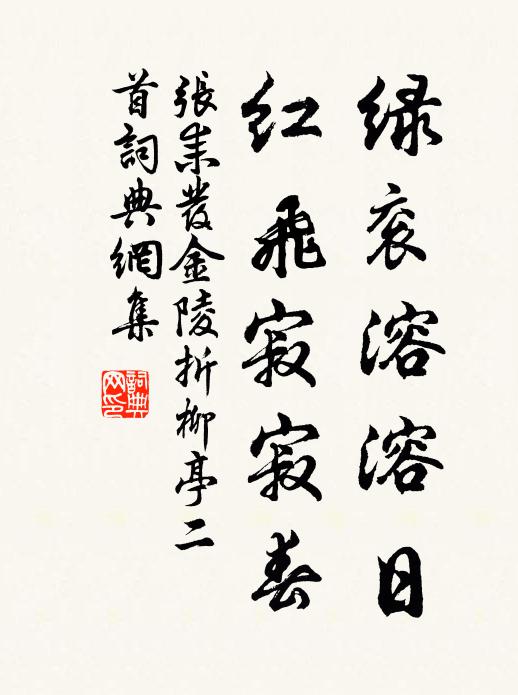 緑衮溶溶日
紅飛寂寂春
張耒發金陵折柳亭二
首詞典網集
詞典網印